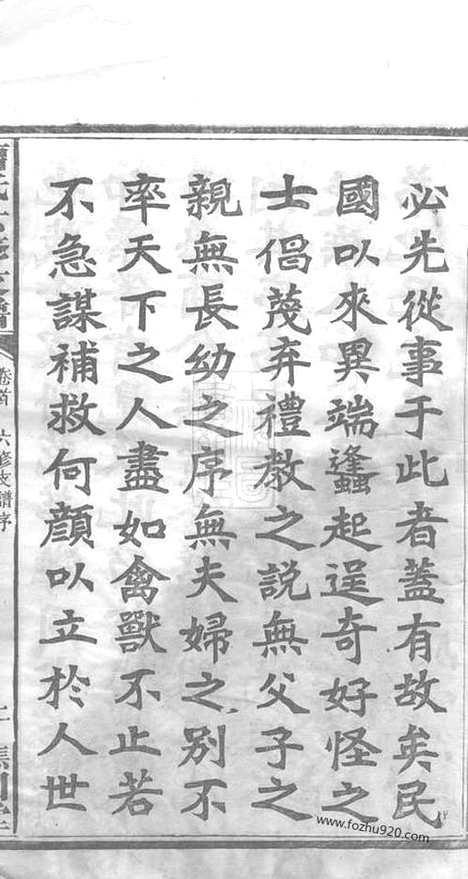 必先從事于此者蓋有故矣民
國以來異端蠭起逞奇好怪之
士倡蔑弃禮教之説無父子之
親無長幼之序無夫婦之别不
率天下之人盡如禽獸不止若
不急謀補救何顔以立於人世
卷首 六修支譜序
www.fozhu920.com